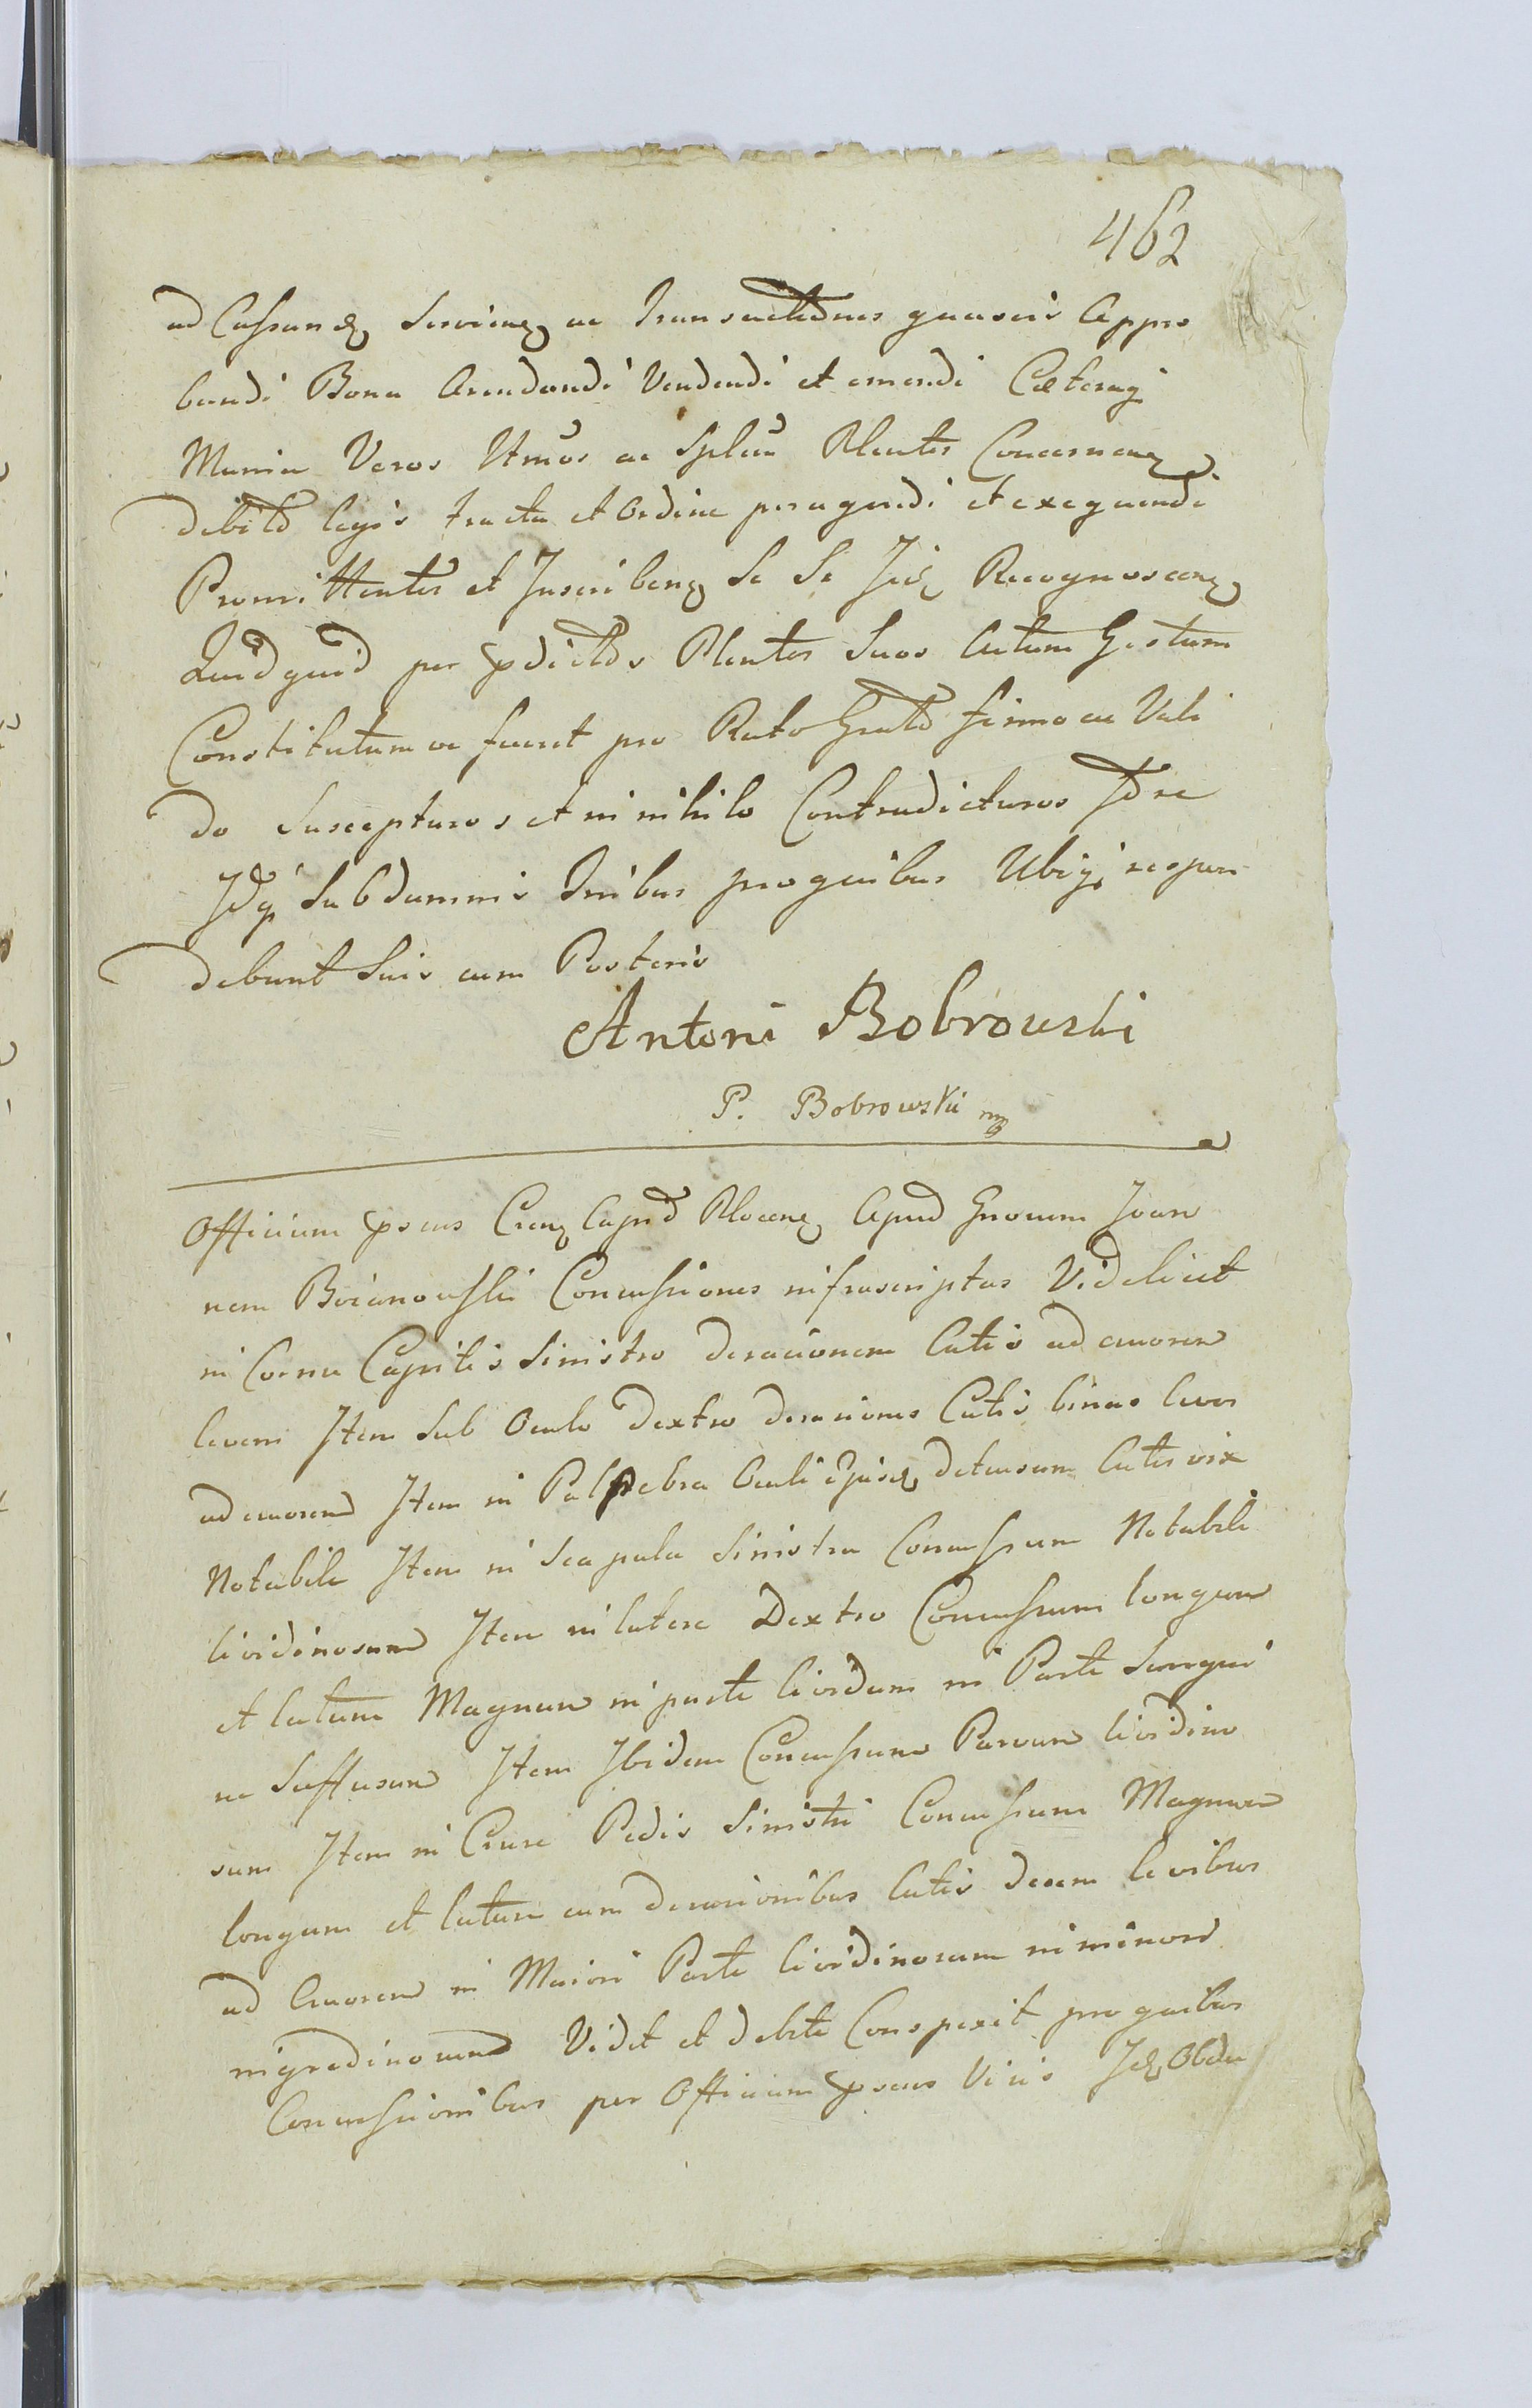 462
ad Cassandū servienū ac Transactiones quasvis Appro
bandi Bona Arendandi Vendendi et emendi Cæteraq
Munia Veros Utmos ac splūm Plentes Concernenū
debito legis tractu et Ordine peragendi et exequendi
Promittentes et Inscribenū Se Se Recognoscenū
Quidquid per pdictos Plentes Suos Actum Gestum
Constitutum ve fuerit pro Rato Grato firmo ac Vali
do Suscepturos et in nihilo Contradicturos fore
Idq Sub damnis Tribus pro quibus Ubiq respon
debunt Suis cum Posteris
Antoni Bobrowski
P. Bobrowski mp
Officium psens Castr Capit Plocenū Apud Gnosum Joan
nem Boianowski Concussiones infrascriptas Videlicet
in Cornu Capitis Sinistro derasionem Cutis ad cruorem
levem Item Sub Oculo dextro derasiones Cutis binas leves
ad cruorem Item in Palpebra Oculi ejusd detensum Cutis vix
Notabile Item in Scapula Sinistra Concussum Notabile
lividinosum Item in latere Dextro Concussum longum
et latum Magnum in parte lividum in Parte Sangui
ne Suffusum Item Ibidem Concussum Parvum lividino
sum Item in Crure Pedis Sinistri Concussum Magnum
longum et latum cum derasionibus Cutis decem levibus
ad Cruorem in Maiori Parte lividinosum in minori
nigredinosum Vidit et debite Conspexit pro quibus
Concussionibus per Officium psens Visis Obdu